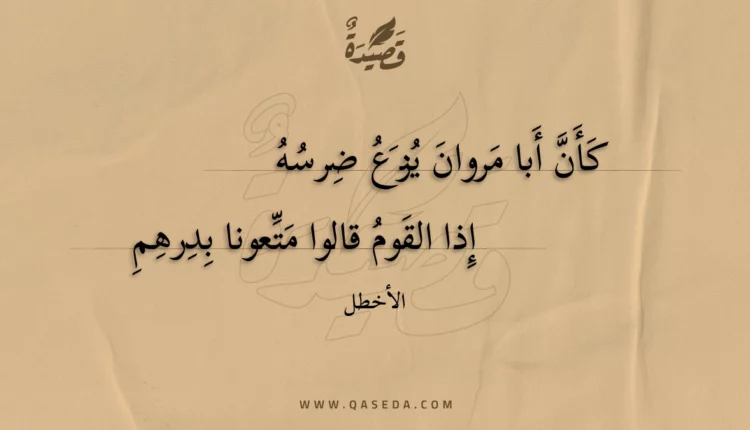 قَصِيدَةٌ
كَأَنَّ أَبا مَروانَ يُنزَعُ ضِرسُهُ
إِذا القَومُ قالوا مَتِّعونا بِدِرهِمِ
الأخطل
WWW.QASEDA.COM